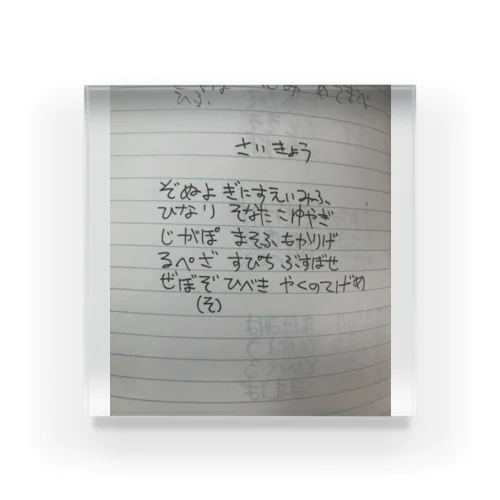 ひふ、
さいきょう
ぞぬよ ぎにすえいみふ、
ひなり そなたこゆやぎ
じがぽ まそふもかりげ
るぺざ すぴち ぶすばせ
ぜぼぞ ひべき やくのてげめ
(そ)